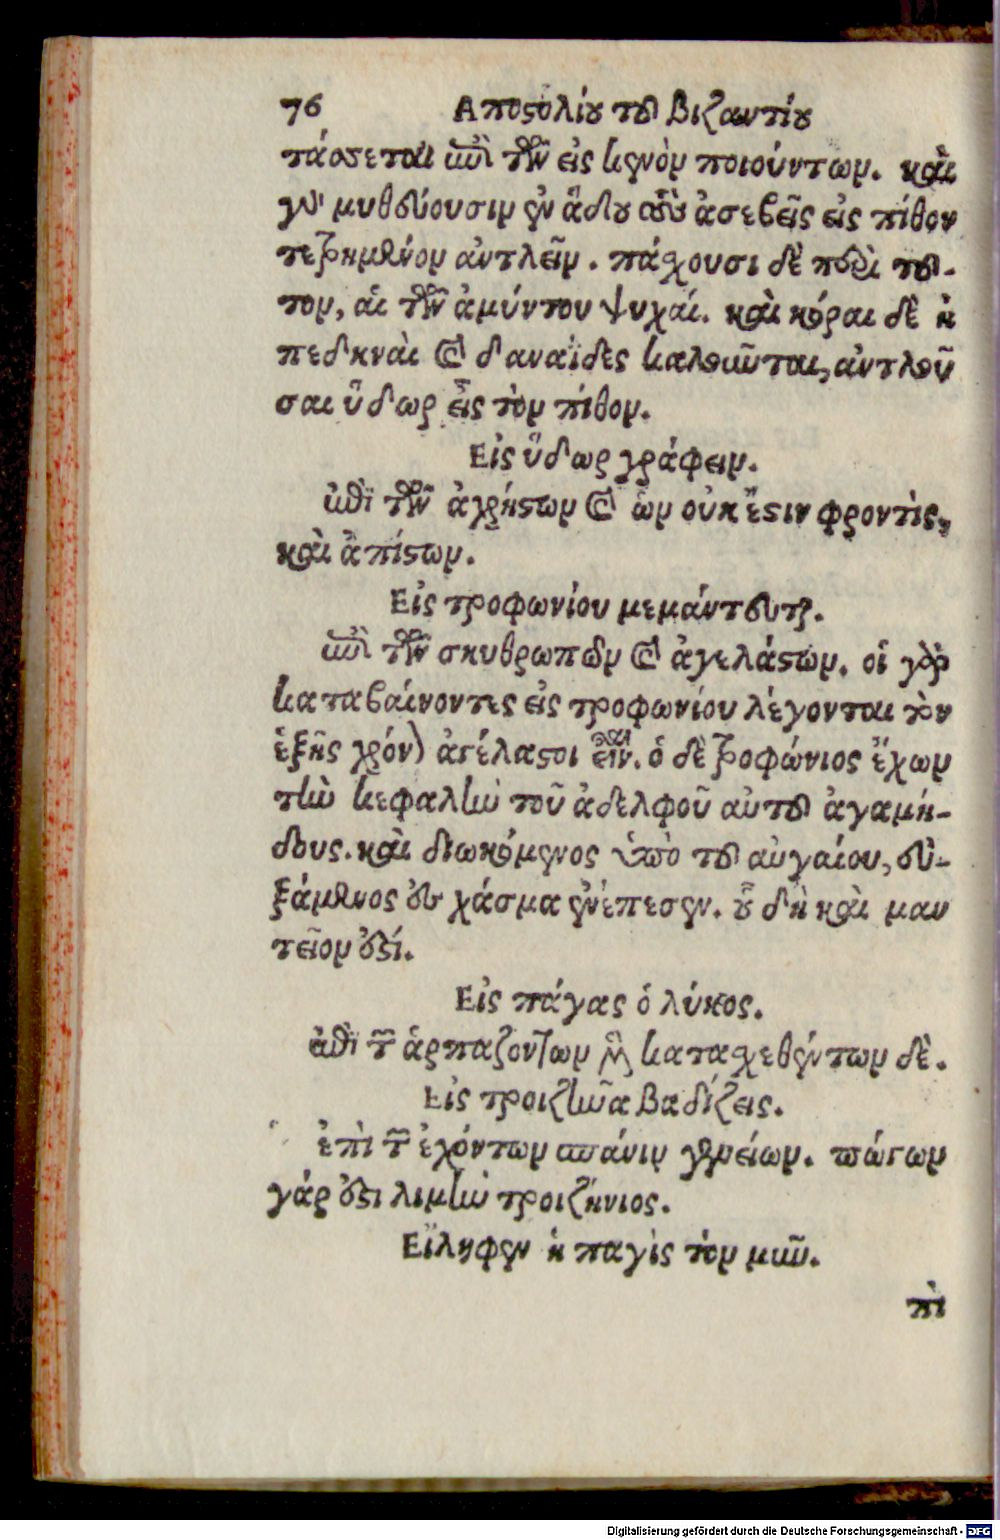 76 Αποστολίου τοῦ βιζαντίου
τάσσεται ἐπὶ τῶν εἰς κενὸν ποιούντων. καὶ
γὰρ μυθεύουσιν ἐν ἅδου τοὺς ἀσεβεῖς εἰς πίθον
τετρημένον ἀντλεῖν. πάσχουσι δὲ περὶ τοῦ-
τον, αἱ τῶν ἀμύντου ψυχαί. καὶ κόραι δὲ ἡ
πεδηναὶ καὶ δαναΐδες καλοῦνται, ἀντλοῦ
σαι ὕδωρ εἰς τὸν πίθον.
Εἰς ὕδωρ γράφειν.
ἐπὶ τῶν ἀχρήστων καὶ ὧν οὐκ ἔστιν φροντὶς,
καὶ ἀπίστων.
Εἰς τροφωνίου μεμάντευται.
ἐπὶ τῶν σκυθρωπῶν καὶ ἀγελάστων. οἱ γὰρ
καταβαίνοντες εἰς τροφωνίου λέγονται τὸν
ἑξῆς χρόνον ἀγέλαστοι εἶναι. ὁ δὲ τροφώνιος ἔχων
τὴν κεφαλὴν τοῦ ἀδελφοῦ αὐτοῦ ἀγαμή-
δους. καὶ διωκόμενος ὑπὸ τοῦ αὐγαίου, εὐ-
ξάμενος εἰς χάσμα ἐνέπεσεν. οὗ δὴ καὶ μαν
τεῖον ἐστί.
Εἰς πάγας ὁ λύκος.
ἐπὶ τῶν ἁρπαζόντων μὲν κατασχεθέντων δέ.
Εἰς τροιζῆνα βαδίζεις.
ἐπὶ τῶν ἐχόντων σπάνιν γενείων. πώγων
γάρ ἐστι λιμὴν τροιζήνιος.
Εἴληφεν ἡ παγὶς τὸν μῦν.
πὶ
Digitalisierung gefördert durch die Deutsche Forschungsgemeinschaft - DFG